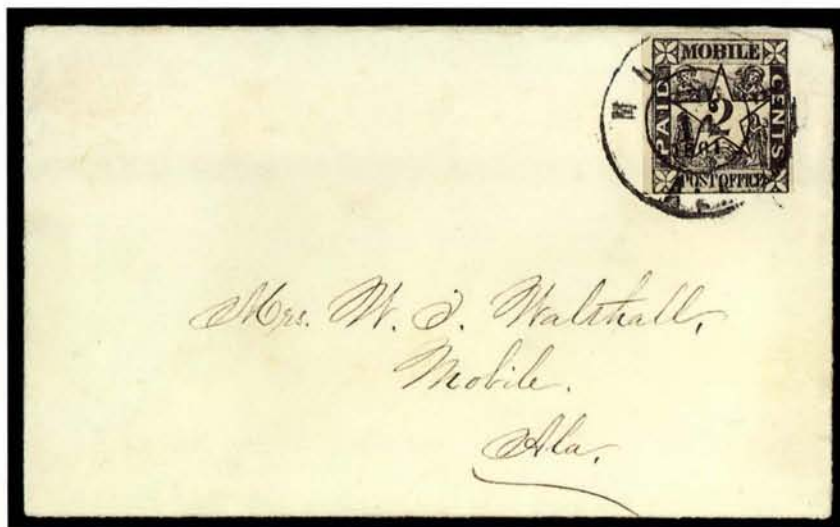 MOBILE
PAID 2 CENTS
POST OFFICE
Mrs. W. T. Walthall,
Mobile.
Ala.